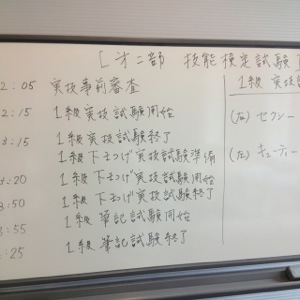 [第二部 技能検定試験
2:05 実技事前審査
2:15 1級実技試験開始
3:15 1級実技試験終了
1級下つげ実技試験準備
:20 1級下つげ実技試験開始
:50 1級下つげ実技試験終了
:55 1級筆記試験開始
:25 1級筆記試験終了
1級 実技
(左) セクシー
(右) キューティー